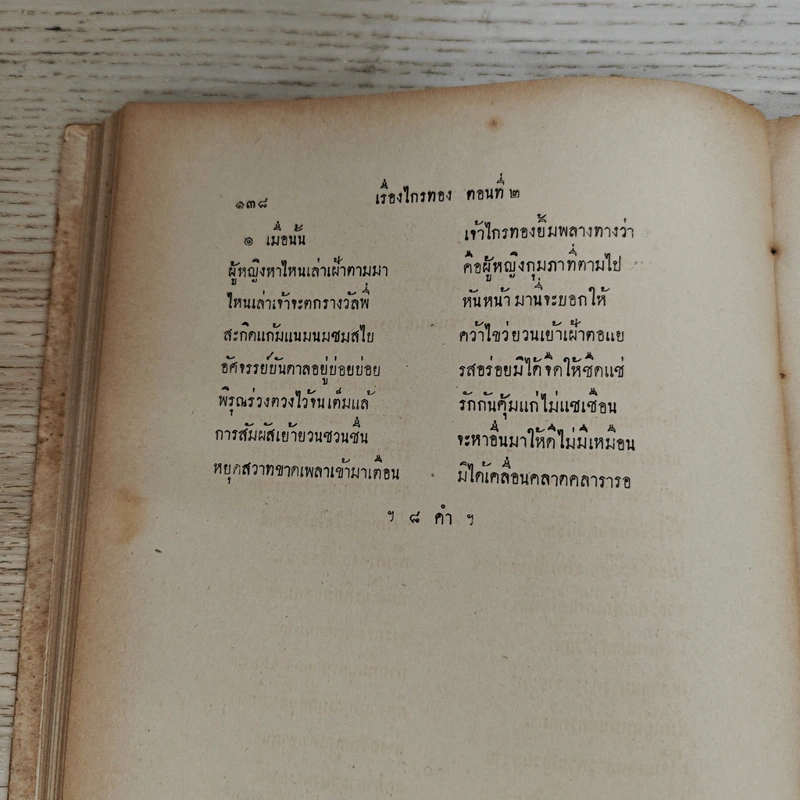 ๑๓๘ เรื่องไกรทอง ตอนที่ ๒
๑ เมื่อนั้น เจ้าไกรทองยิ้มพลางทางว่า
ผู้หญิงหาไหนเล่าเฝ้าตามมา คือผู้หญิงกุมภาที่ตามไป
ไหนเล่าเจ้าจะตกรางวัลพี่ หันหน้ามานี่จะยอกให้
สะกิดแก้มแนมนมชมสไบ คว้าไขว่ยวนเย้าเฝ้าตอแย
อัศจรรย์บันดาลอยู่ย่อยย่อย รสอร่อยมิได้จืดให้ชืดแช่
พิรุณร่วงตวงไว้จนเต็มแล้ รักกันคุ้มแก่ไม่แชเชือน
การสัมผัสเย้ายวนชวนชื่น จะหาอื่นมาให้ดีไม่มีเหมือน
หยุดสวาทขาดเพลาเข้ามาเตือน มิได้เคลื่อนคลาดคลารารอ
ฯ ๘ คำ ฯ